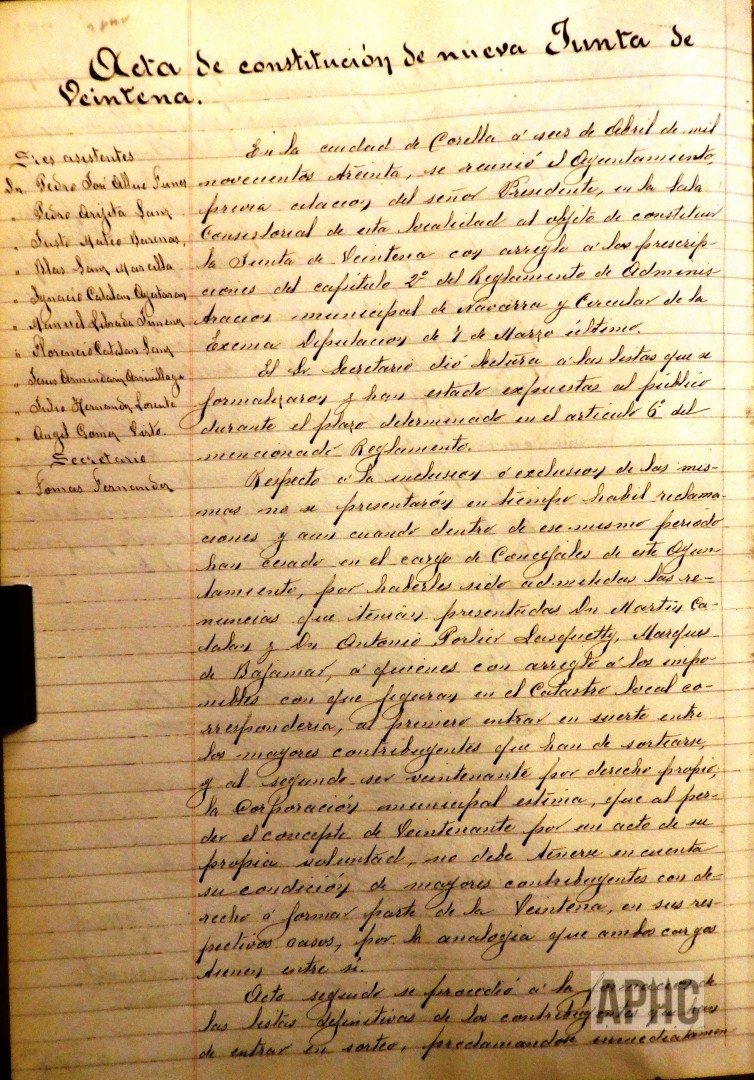 Acta de constitución de nueva Junta de
Veintena.
Sres asistentes
Dn. Pedro José Allue Funes
" Pedro Arijita Sanz
" Justo Mateo Barenas,
" Blas Sanz Marcilla
" Ignacio Catalan
" Manuel Jimenez
" Florencio Catalan Sanz
" Jesus Armendariz Arrivillaga
" Julio Hernandez Lorente
" Angel Gomez Virto.
Secretario
" Tomas Fernandez
En la ciudad de Corella á seis de Abril de mil
novecientos treinta, se reunió el Ayuntamiento,
previa citacion del señor Presidente, en la Sala
Consistorial de esta localidad al objeto de constituir
la Junta de Veintena con arreglo á las prescrip-
ciones del capitulo 2º del Reglamento de Adminis-
tracion municipal de Navarra y Circular de la
Excma Diputacion de 7 de Marzo último.
El Sr. Secretario dió lectura á las listas que se
formalizaron y han estado expuestas al público
durante el plazo determinado en el articulo 6º del
mencionado Reglamento.
Respecto á la inclusion ó exclusion de las mis-
mas no se presentarón en tiempo habil reclama-
ciones y aun cuando dentro de ese mismo periodo
han cesado en el cargo de Concejales de este Ayun
tamiento, por haberles sido admitidas las re-
nuncias que tenian presentadas Dn Martin Ca-
talan y Dn Antonio Porlier Lasquetty, Marques
de Bajamar, á quienes con arreglo á los impo-
nibles con que figuran en el Catastro local co-
rresponderia, al primero entrar en suerte entre
los mayores contribuyentes que han de sortearse,
y al segundo ser veintenante por derecho propio,
la Corporación municipal estima, que al per-
der el concepto de Veintenante por un acto de su
propia voluntad, no debe tenerse en cuenta
su condición de mayores contribuyentes con de-
recho á formar parte de la Veintena, en sus res-
pectivos casos, por la analogia que ambos cargos
tienen entre si.
Acto seguido se procedió á la de
las listas definitivas de los
de entrar en sorteo, proclamandose inmediatamen
APHC